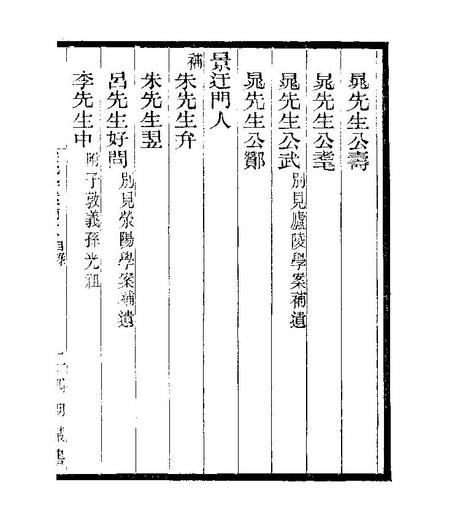 晁先生公壽
晁先生公耄
晁先生公武 別見廬陵學案補遺
晁先生公鄭
景迂門人
補 朱先生弁
朱先生翌
呂先生好問 別見滎陽學案補遺
李先生中 附子敦義孫光祖
四明叢書